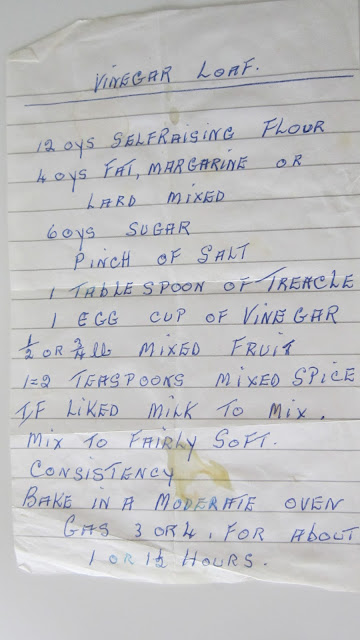 VINEGAR LOAF.
12 ozs SELFRAISING FLOUR
4 ozs FAT, MARGARINE OR
LARD MIXED
6 ozs SUGAR
PINCH OF SALT
1 TABLESPOON OF TREACLE
1 EGG CUP OF VINEGAR
½ OR ¾ lb MIXED FRUIT
1=2 TEASPOONS MIXED SPICE
I/F LIKED MILK TO MIX.
MIX TO FAIRLY SOFT.
CONSISTENCY
BAKE IN A MODERATE OVEN
GAS 3 OR 4. FOR ABOUT
1 OR 1½ HOURS.